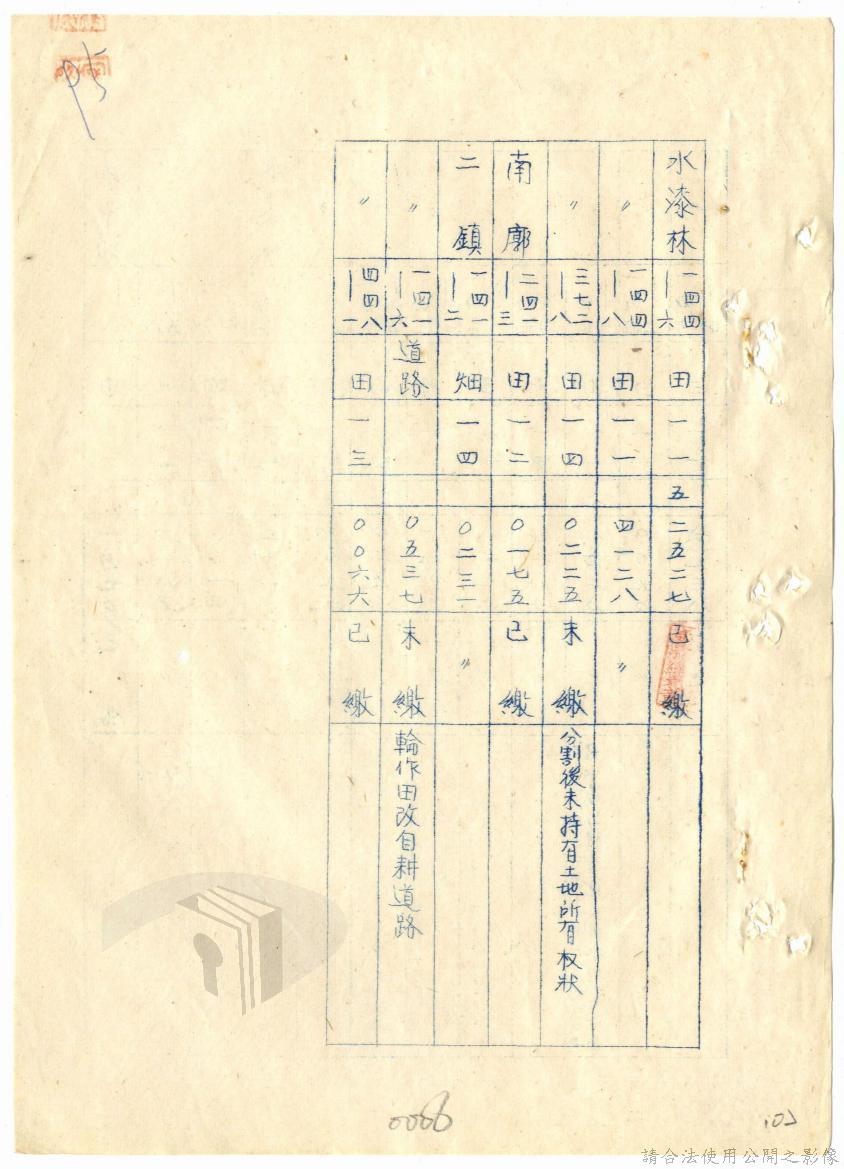 水漆林 一四四—六 田 一一 五 二五二七 已繳
〃 一四四—八 田 一一 四一二八 〃
〃 三七二—八 田 一四 〇二二五 未繳 分割後未持有土地所有权狀
南廓 二四一—三 田 一二 〇一七五 已繳
二鎮 一四一—二 畑 一四 〇二三一 〃
〃 一四一—六 道路 〇五三七 未繳 輪作田改自耕道路
〃 四四八—一 田 一三 〇〇六六 已繳
0006
請合法使用公開之影像